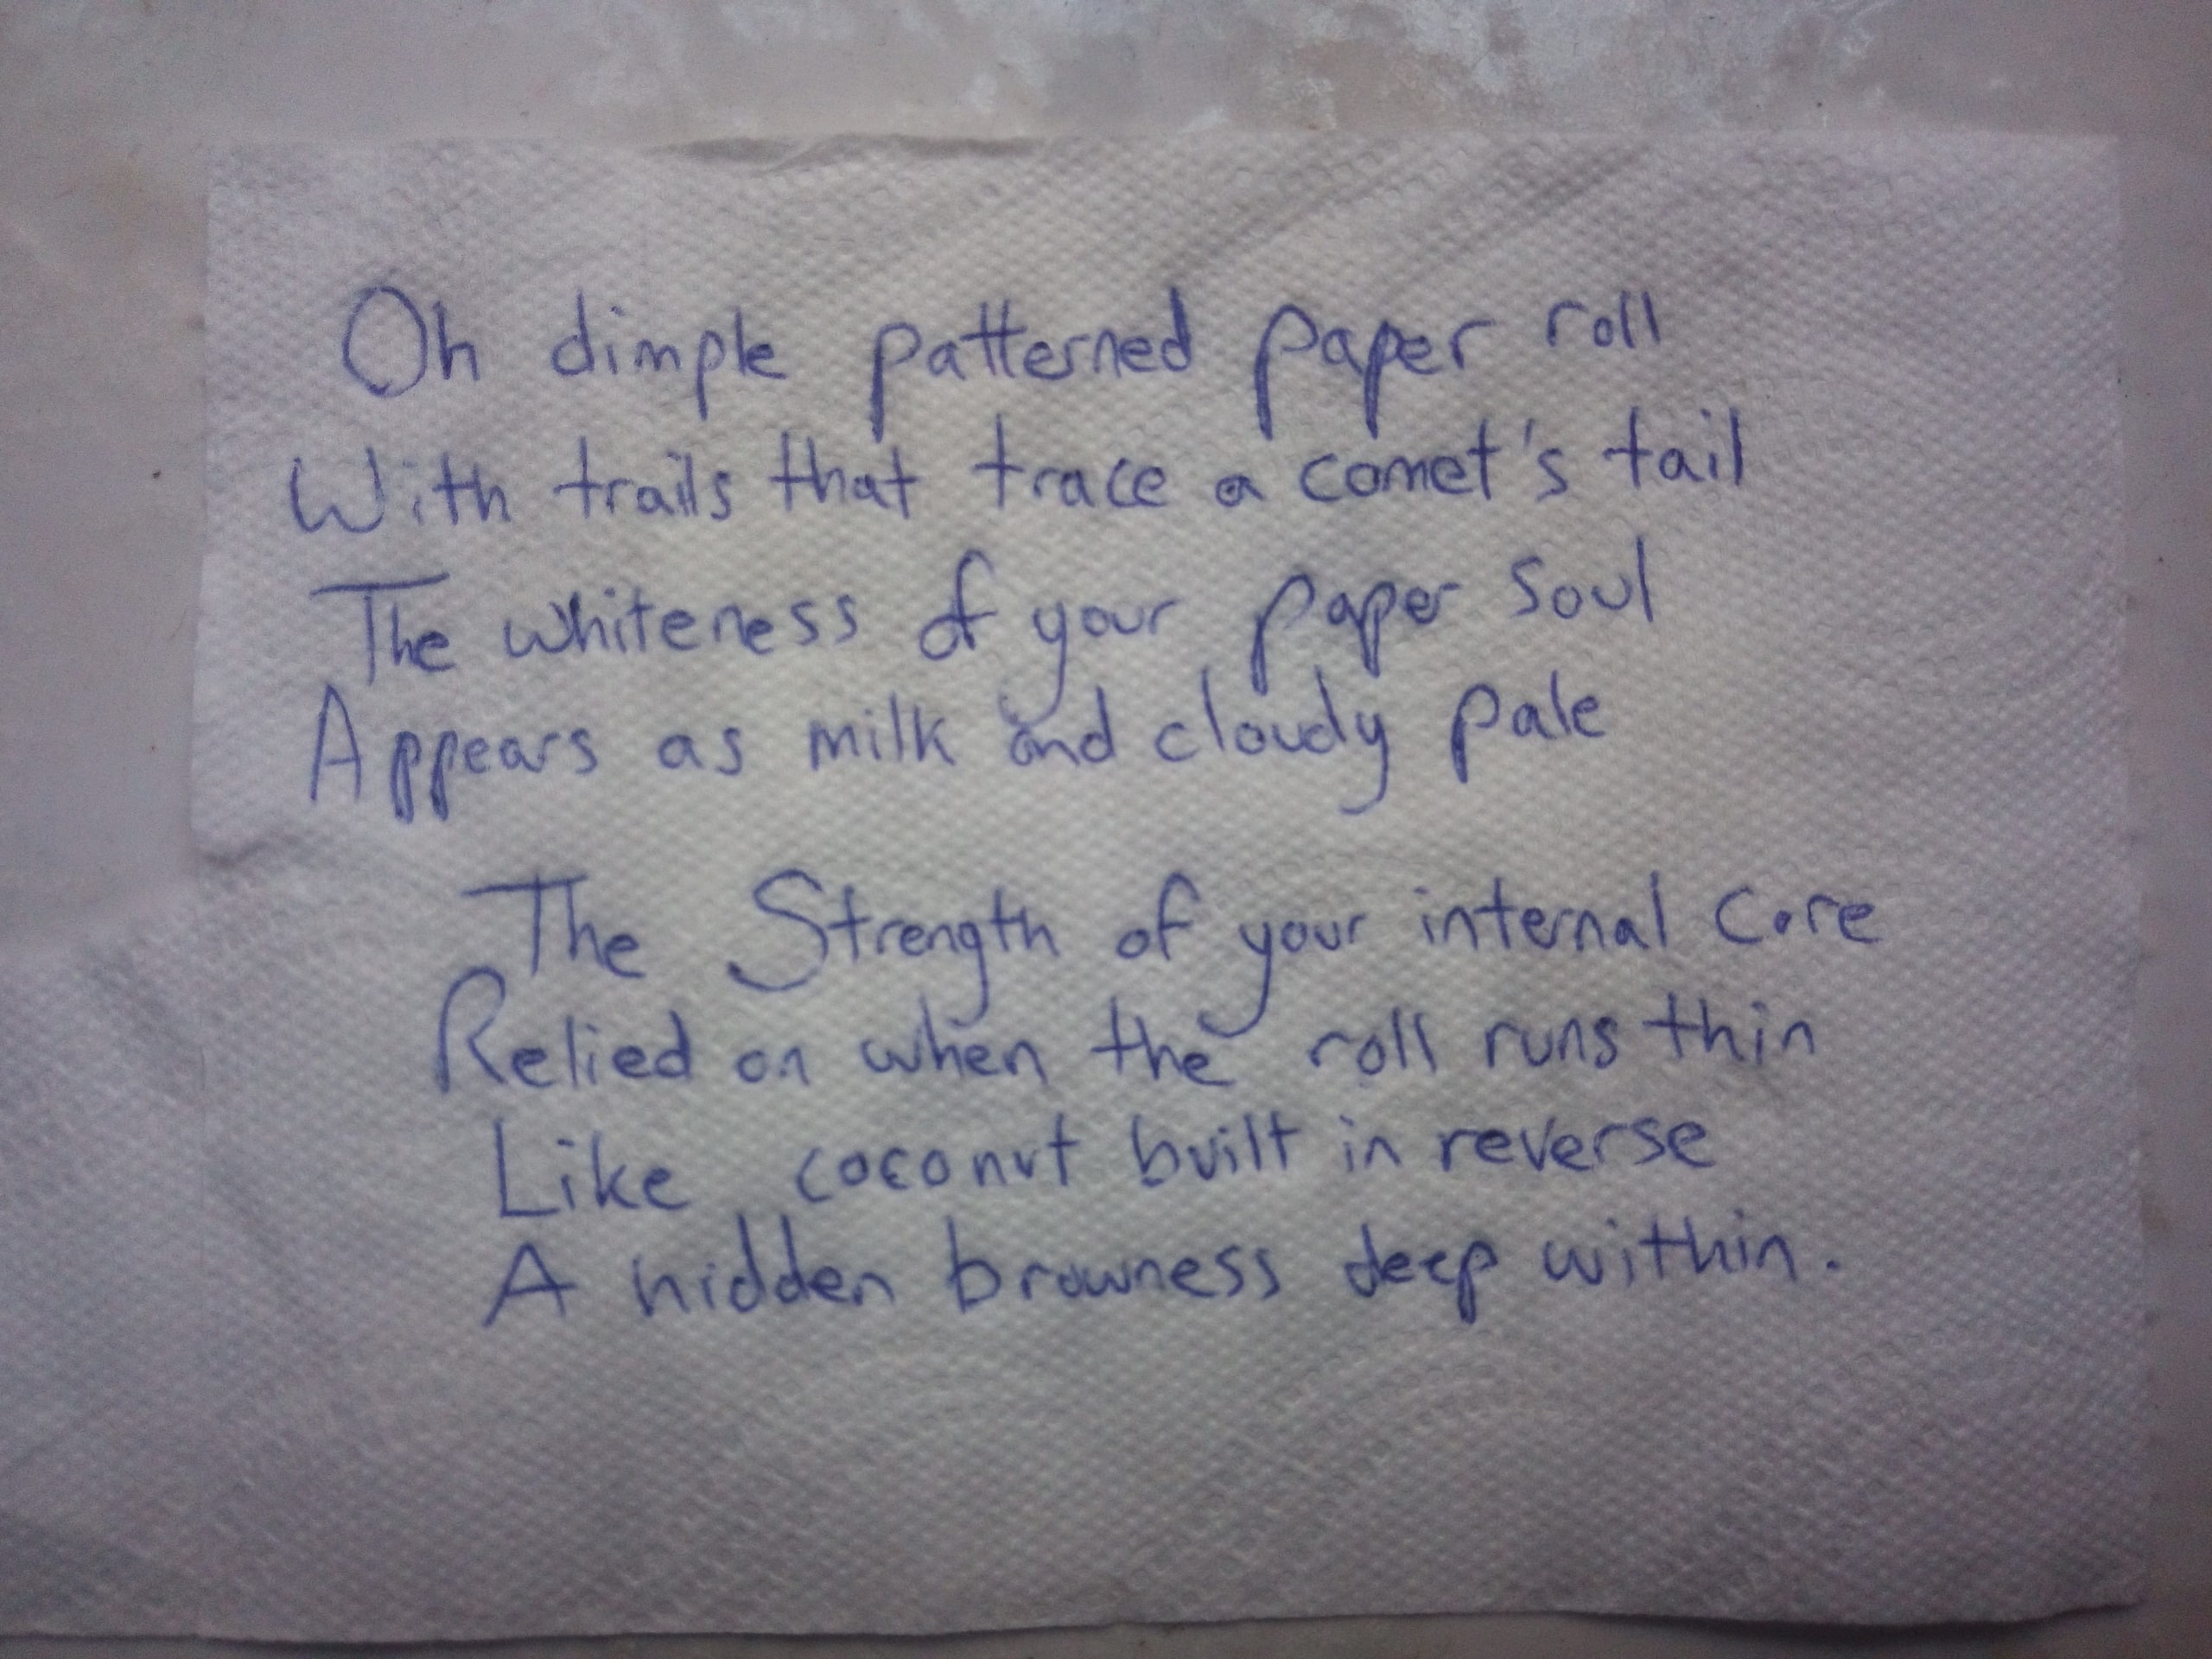 Oh dimple patterned paper roll
With trails that trace a comet's tail
The whiteness of your paper soul
Appears as milk and cloudy pale
The Strength of your internal Core
Relied on when the roll runs thin
Like coconut built in reverse
A hidden browness deep within.